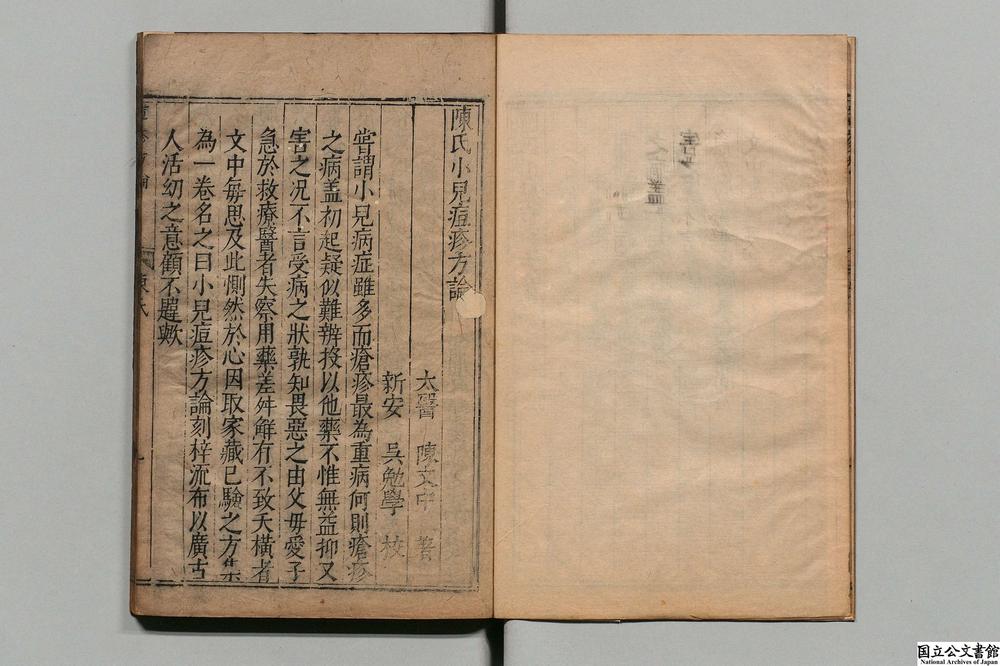 陳氏小兒痘疹方論
太醫 陳文中 著
新安 吳勉學 校
嘗謂小兒病症雖多而瘡疹最為重病何則瘡疹
之病蓋初起疑似難辨投以他藥不惟無益抑又
害之况不言受病之狀孰知畏惡之由父毋愛子
急於救療醫者失察用藥差舛鮮有不致夭橫者
文中每思及此惻然於心因取家藏已驗之方集
為一卷名之曰小兒痘疹方論刻梓流布以廣古
人活幼之意顧不韙歟
陳氏
国立公文書館
National Archives of Japan